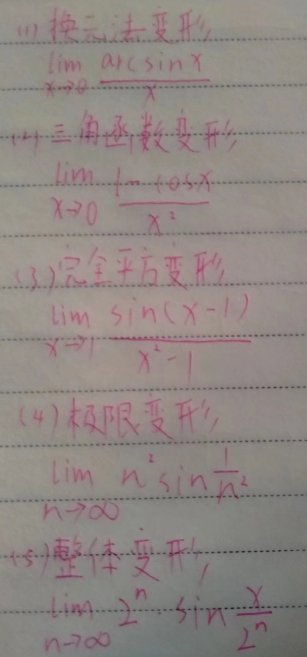 (1) 换元法变形,
lim arcsinx / x
x→0
(2) 三角函数变形,
lim 1-cosx / x²
x→0
(3) 完全平方变形,
lim sin(x-1) / x²-1
x→1
(4) 极限变形,
lim n² sin 1/n²
n→∞
(5) 整体变形,
lim 2ⁿ·sin x/2ⁿ
n→∞